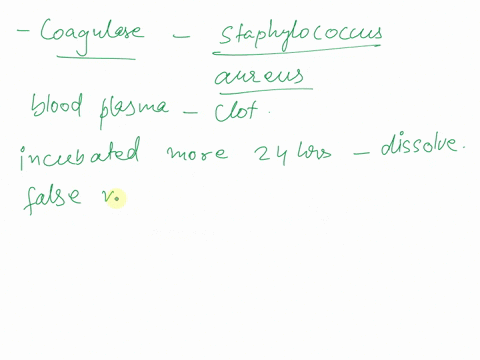 - Coagulase - Staphylococcus
aureus
blood plasma - clot.
incubated more 24 hrs - dissolve.
false